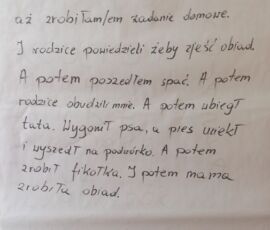 aż zrobiłam/em zadanie domowe.
I rodzice powiedzieli żeby zjeść obiad.
A potem poszedłem spać. A potem
rodzice obudzili mnie. A potem ubiegł
tata. Wygonił psa, a pies uciekł
i wyszedł na podwórko. A potem
zrobił fikołka. I potem mama
zrobiła obiad.